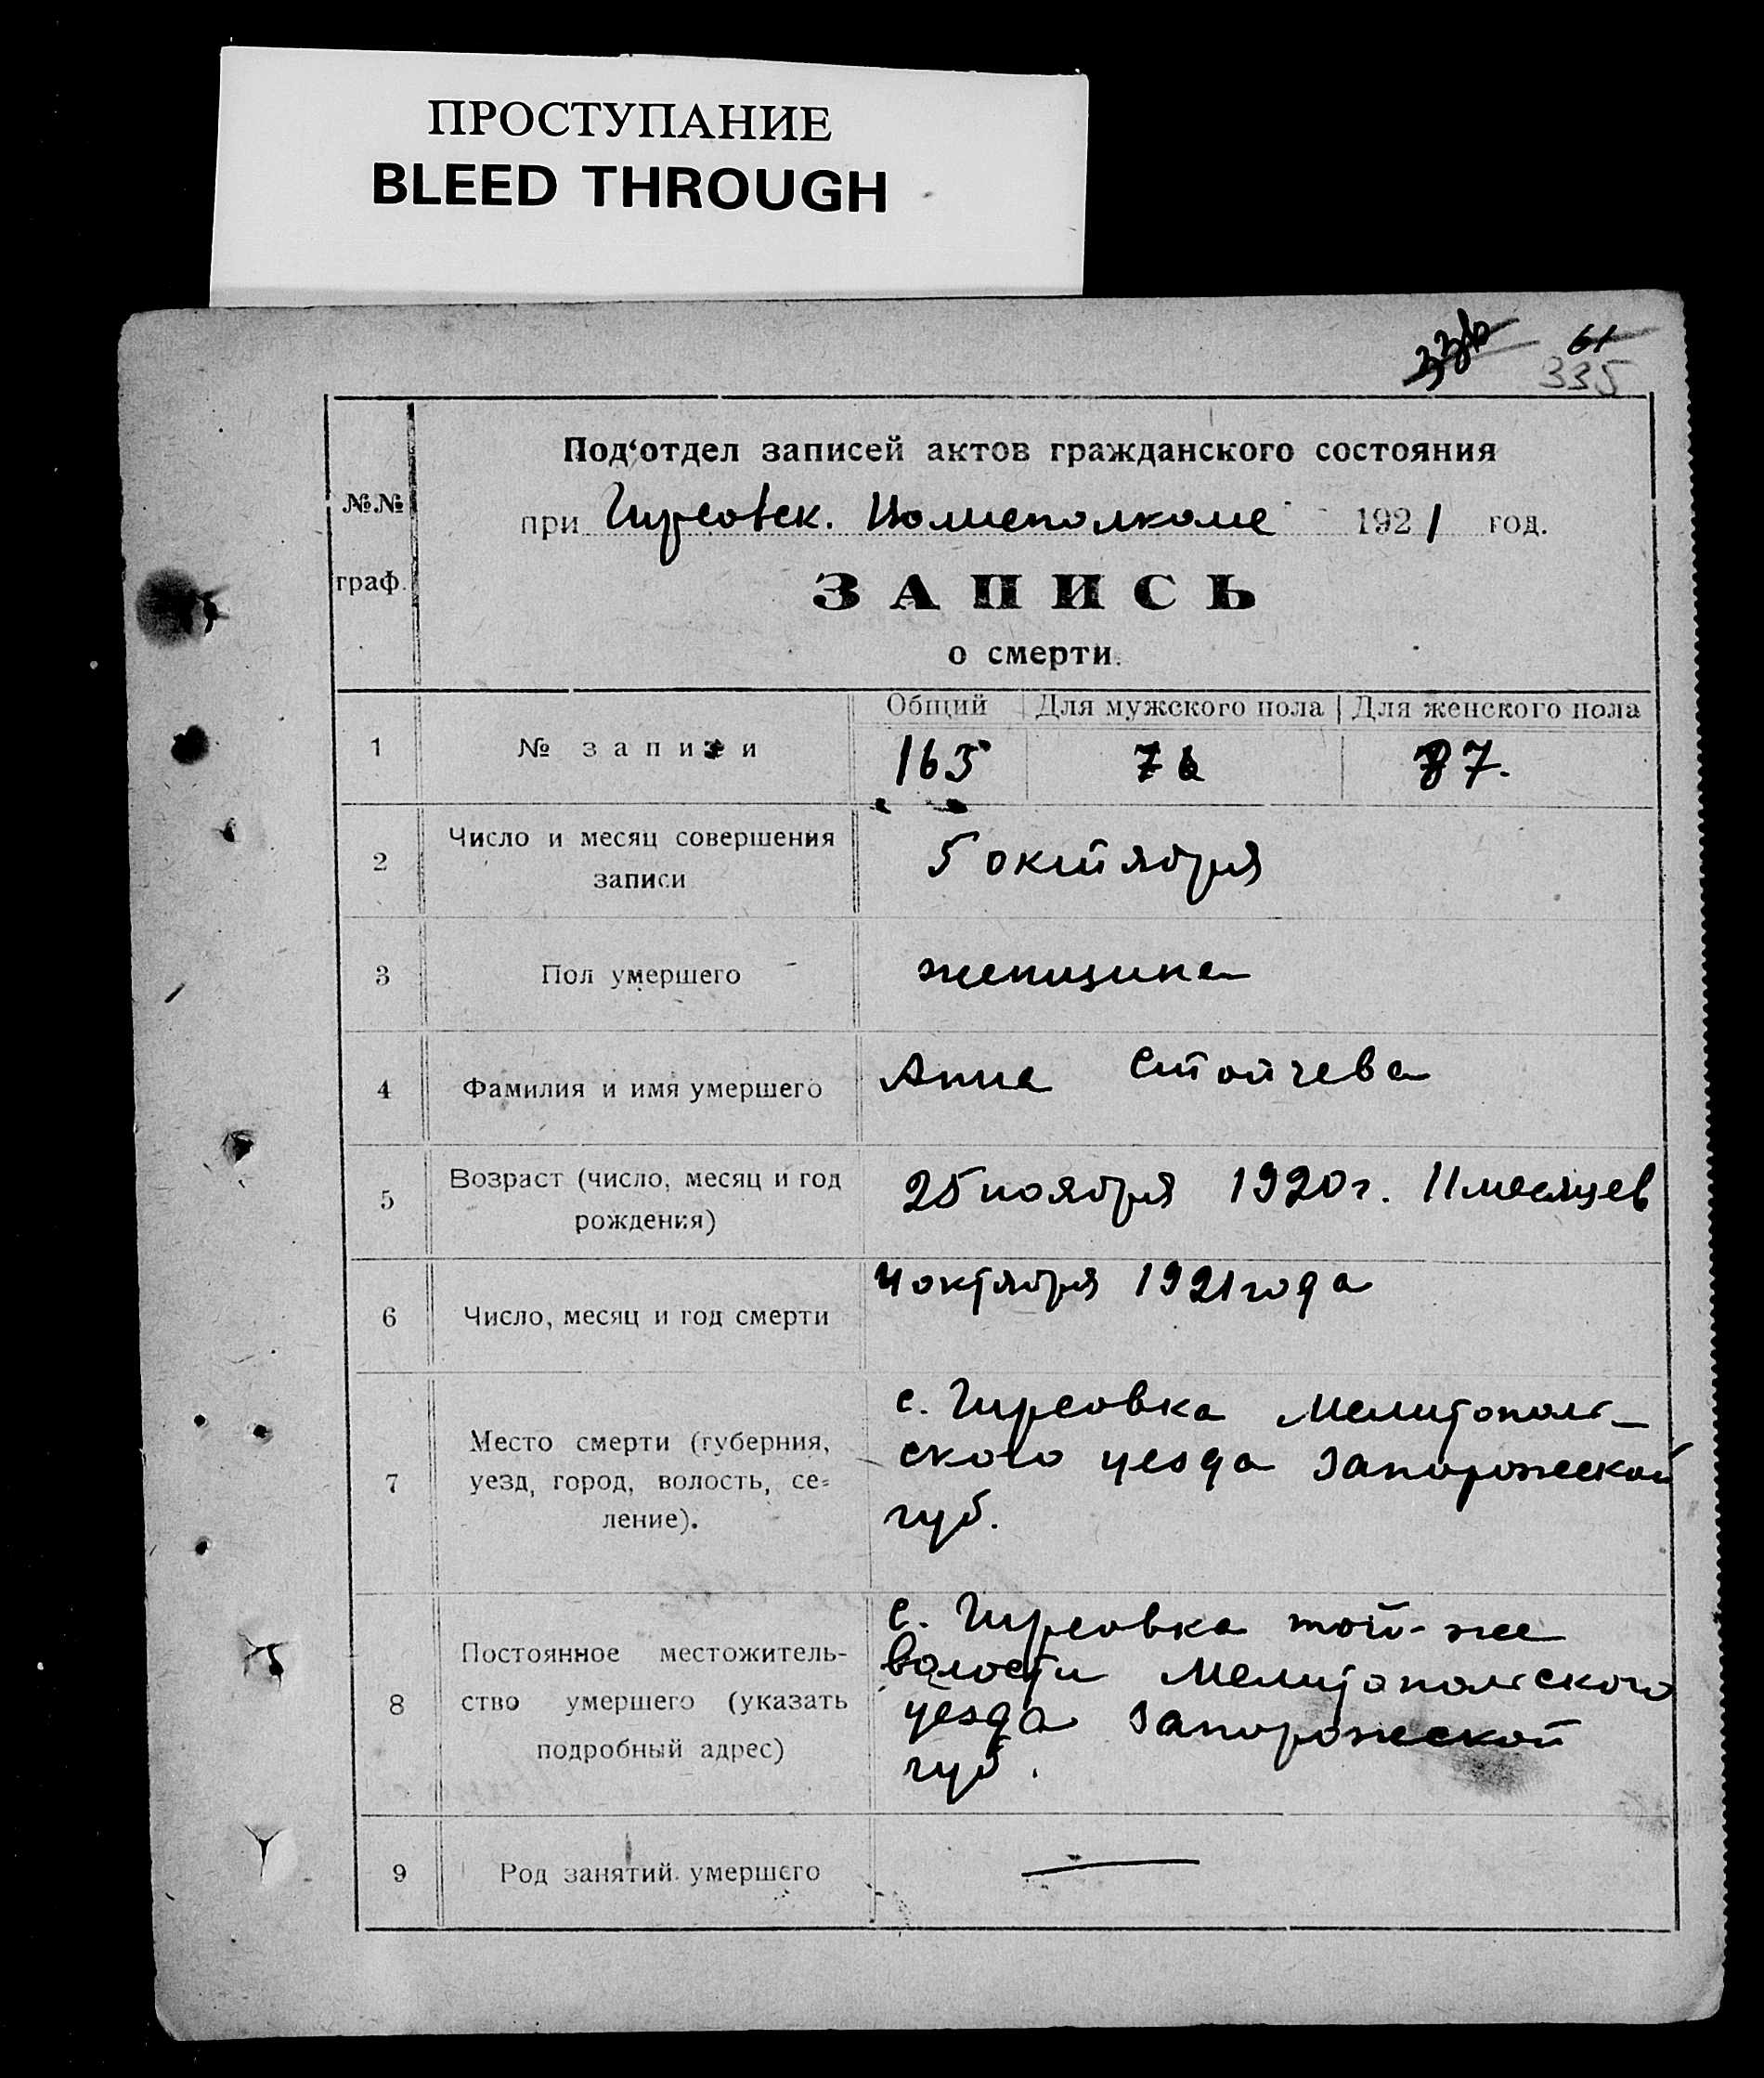 ПРОСТУПАНИЕ
BLEED THROUGH
61
335
Под‘отдел записей актов гражданского состояния
№№
при Гирсовск. Волисполкоме 1921 год.
граф.
ЗАПИСЬ
о смерти.
Общий Для мужского пола Для женского пола
1 № записи 163 76 87.
2 Число и месяц совершения
записи
5 октября
3 Пол умершего женщина
4 Фамилия и имя умершего Анна Стойчева
5 Возраст (число, месяц и год
рождения)
25 ноября 1920 г. 11 месяцев
6 Число, месяц и год смерти 4 октября 1921 года
7 Место смерти (губерния,
уезд, город, волость, се-
ление).
с. Гирсовка Мелитополь-
ского уезда Запорожской
губ.
8 Постоянное местожитель-
ство умершего (указать
подробный адрес)
с. Гирсовка той-же
волости Мелитопольского
уезда Запорожской
губ.
9 Род занятий умершего —